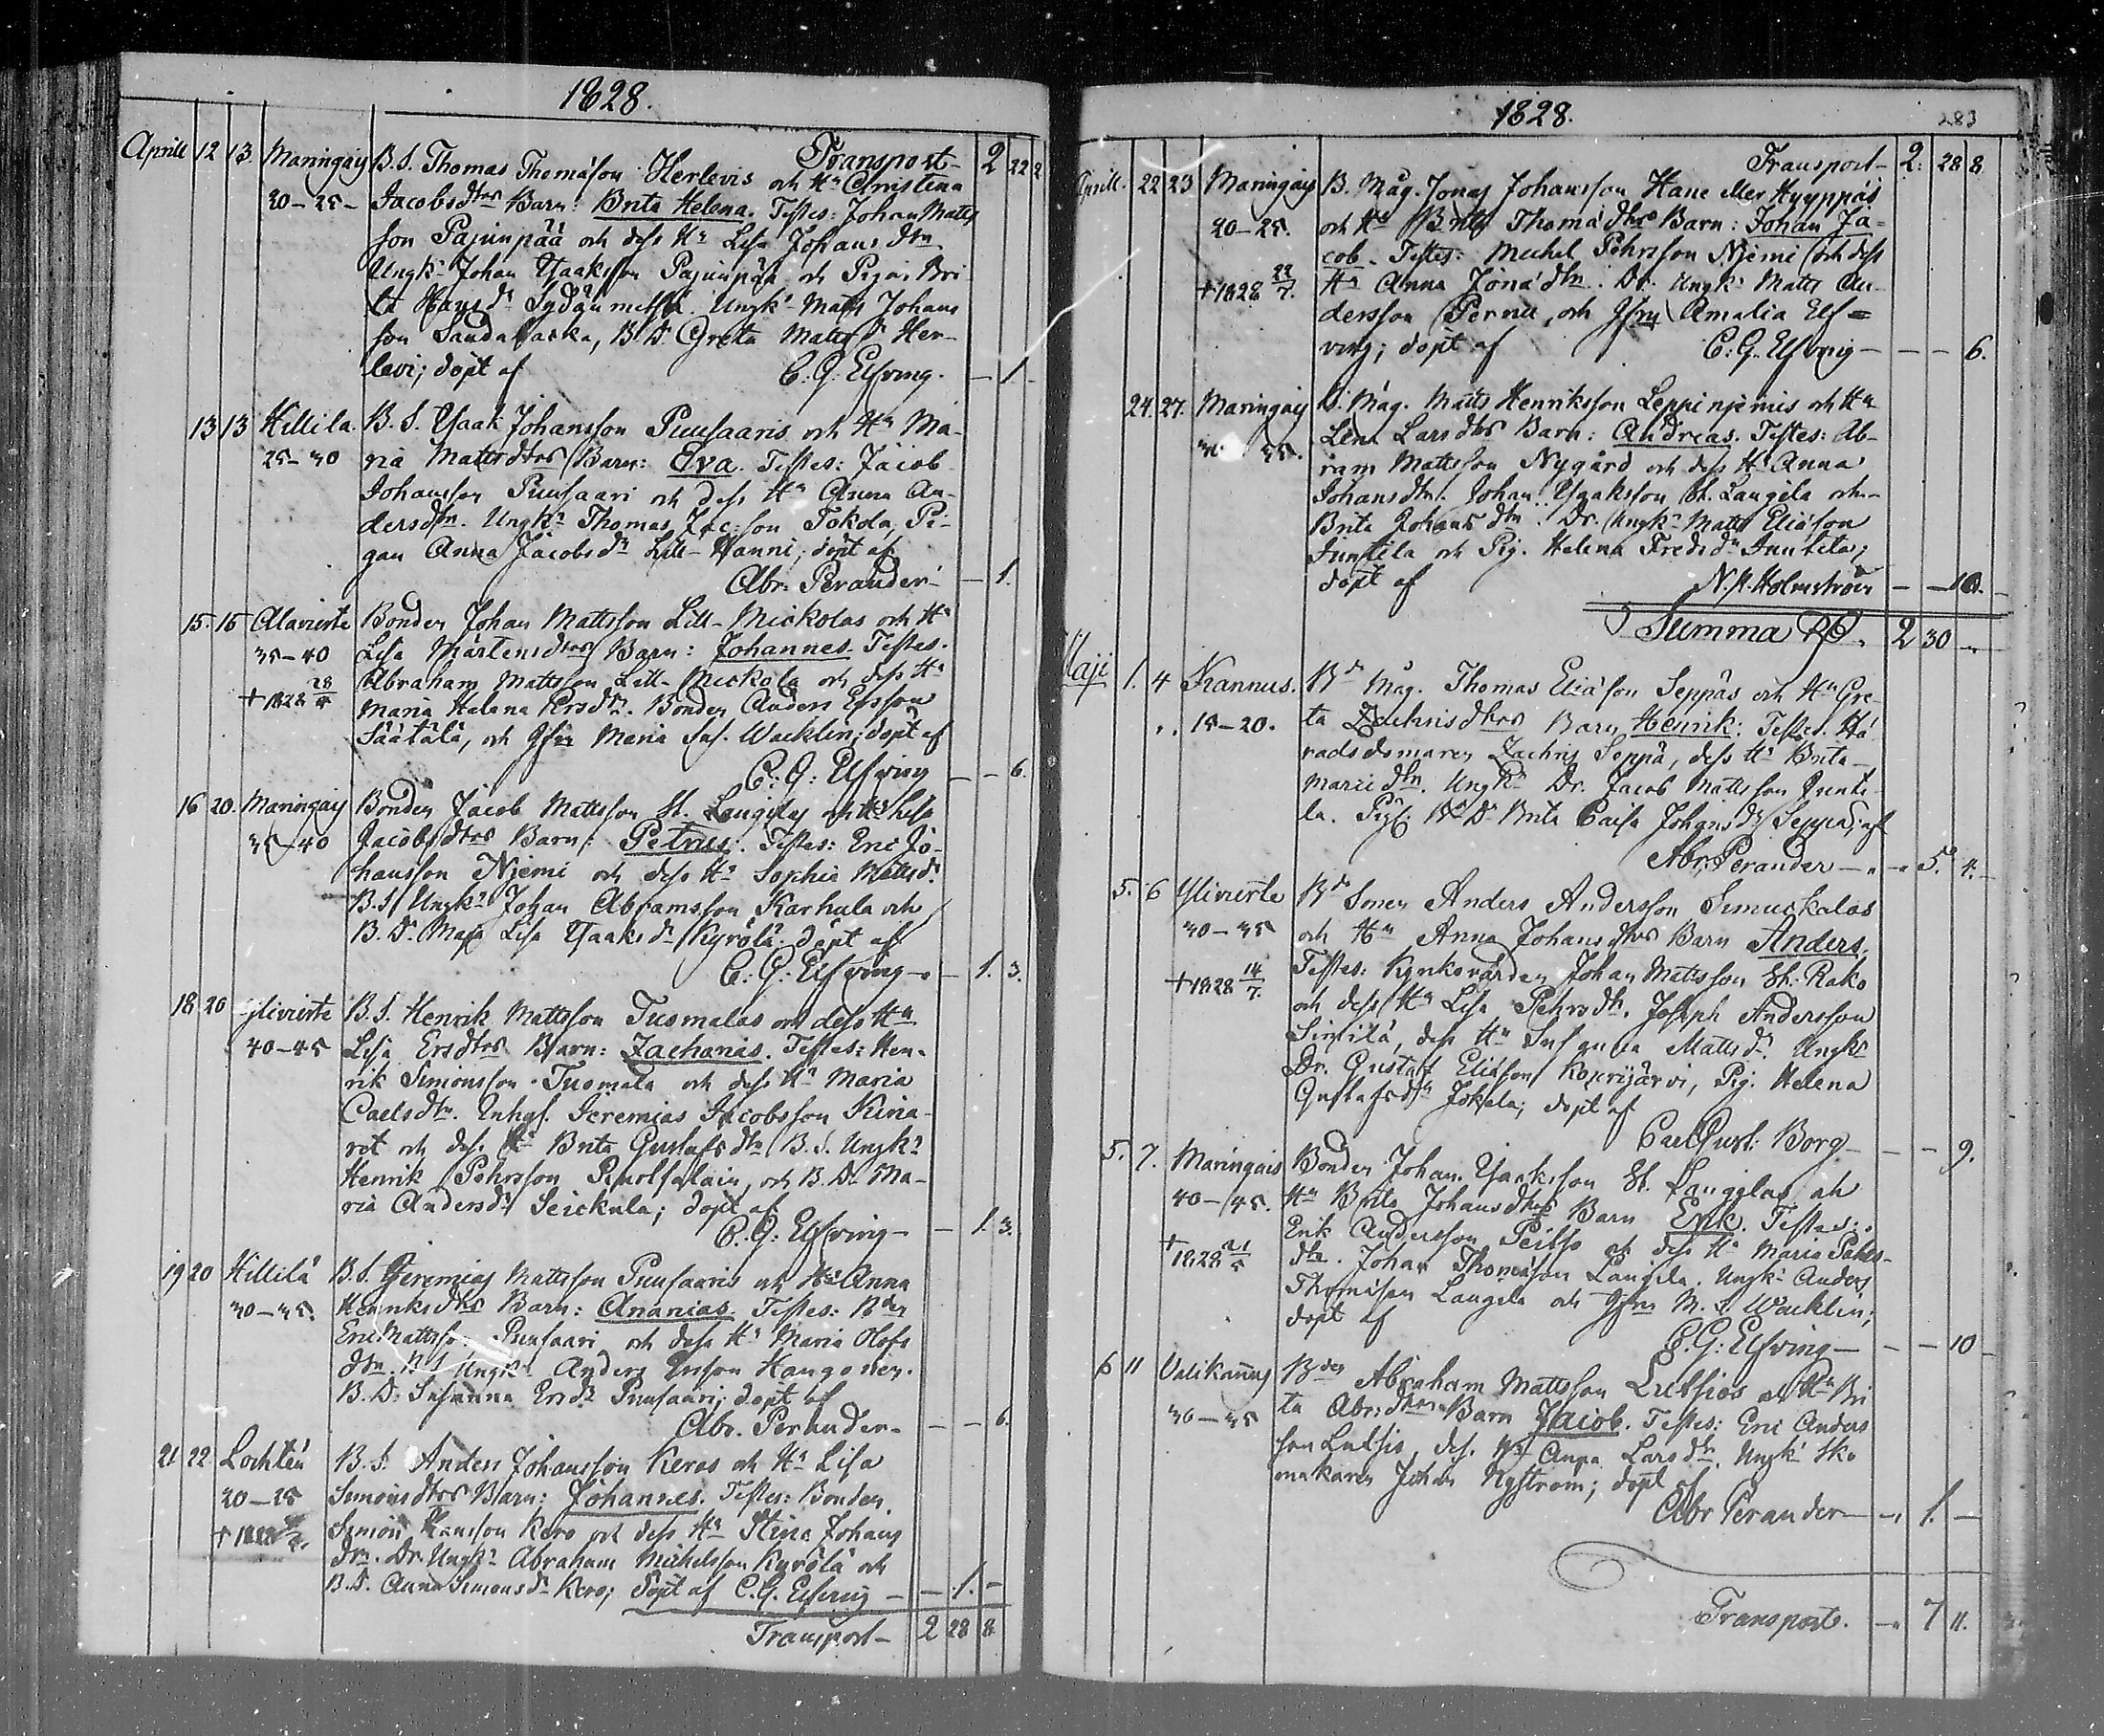 1828.
Transport- 2 22 2
Aprill 12 13 Maringais B. S. Thomas Thomasson Herlevis och Hu Christina
20-25- Jacobsdtrs Barn: Brita Helena. Testes: Johan Matts
son Pajunpää och dess Hu Lisa Johans dtr.
Ungk. Johan Isaksson Pajunpää och Pigan Bri
ta Hans dr Ungk. Matts Johans
son, B. D. Greta Matts dr Her-
levi; döpt af C. G. Elfving. - 1 -
13 13 Hillilä B. S. Isaak Johansson Puusaaris och Hu Ma-
25-30 ria Mattsdtrs Barn: Eva. Testes: Jacob
Johansson Puusaari och dess Hu Anna An-
dersdtr. Ungk. Thomas Jac:son Tokola, Pi-
gan Anna Jacobs dr Lill-Hanni; döpt af
Abr. Perander - 1.
15. 16 Alavieste Bonden Johan Mattsson Lill-Mickolas och Hu
35-40 Lisa Mårtensdtrs Barn: Johannes. Testes.
Abraham Mattsson Lill-Mickola och dess Hu
+ 1828 28/5 Maria Helena Persdtr. Bonden Anders Ersson
Säätälä, och Jfru Maria Sus. Wacklin; döpt af
C: G: Elfving - - 6.
16 20. Maringais Bonden Jacob Mattsson St. Laugilas och Hu Lisa
35-40 Jacobsdtrs Barn: Petrus. Testes: Eric Jo-
hansson Niemi och dess Hu Sophia Mattsdr.
B. S. Ungk. Johan Abramsson Karhula och
B. D. Maja Lisa Isaks dr Kyrölä. döpt af
C: G: Elfving - - 1. 3.
18 20 Ylivieste B. S. Henrik Mattsson Tuomalas och dess Hu
40-45 Lisa Ersdtrs Barn: Zacharias. Testes: Hen-
rik Simonsson Tuomala och dess Hu Maria
Carlsdtr. Inhys. Jeremias Jacobsson Kivia-
ret och dess Hu Brita Gustafs dtr B. S. Ungk.
Henrik Pehrsson, och B. D. Ma-
ria Andersdr Seickula; döpt af
C. G. Elfving - - 1. 3.
19 20 Hillilä B. S. Jeremias Mattsson Puusaaris och Hu Anna
30-35. Henriksdtrs Barn: Ananias. Testes: Bden
Eric Mattsson Puusaari och dess Hu Maria Olofs
dtr. B. S. Ungk. Anders Ersson Haugonen.
B. D. Susanna Ersdr Puusaari; döpt af
Abr. Perander - - 6.
21 22 Lochteå B. S. Anders Johansson Keros och Hu Lisa
20-25 Simonsdtrs Barn: Johannes. Testes: Bonden
Simon Hansson Kero och dess Hu Stina Johans
dtr. Dr. Ungk. Abraham Michelsson Kyrölä och
B. D. Anna Simons dr Kero; döpt af C. G. Elfving - - 1. -
Transport- 2 28 8
1828. 283
Transport- 2: 28 8
Aprill. 22 23 Maringais B. Måg. Jonas Johansson Hane eller Hyyppäs
20-25. och Hu Brita Thoma dtrs Barn: Johan Ja-
cob. Testes: Michel Pehrsson Niemi och dess
+ 1828 22/7. Hu Anna Jona dtr. Dr. Ungk. Matts An-
dersson Pernu, och Jfru Amalia Elf=
ving; döpt af C: G. Elfving - - - 6.
24. 27. Maringais B. Måg. Matts Henriksson Leppiniemis och Hu
35. Lena Larsdtrs Barn: Andreas. Testes: Ab-
ram Mattsson Nygård och dess Hu Anna
Johansdtr. Johan Isaksson St. Laugila och
Brita Johans dtr. Dr. Ungk. Matts Eliason
Juntila och Pig. Helena Freds dr Juntila;
döpt af N. A. Holmström - - 10.
Summa 2 30 -
Maji 1. 4 Kannus. Bd Måg. Thomas Eliason Seppäs och Hu Gre-
15-20. ta Zachrisdtrs Barn Henrik: Testes. Hä-
radsdomaren Zachris Seppä, dess Hu Brita
Mariedtr. Ungk. Dr. Jacob Mattsson Junti-
la. Pig. Bd Dr Brita Caisa Johansdr Seppä; af
Abr. Perander - - 5. 4.
5. 6 Ylivieste Bd Sonen Anders Andersson Simuckalas
30-35 och Hu Anna Johansdtrs Barn Anders.
Testes: Kyrkovärden Johan Mattsson St. Rako
+ 1828 14/7. och dess Hu Lisa Pehrsdtr. Joseph Andersson
Similä, dess Hu Susanna Mattsdr. Ungk.
Dr. Gustaf Eliasson Korpijärvi, Pig. Helena
Gustafsdtr Jokela; döpt af
Carl Gust: Borg - - 9.
5. 7. Maringais Bonden Johan Isaksson St. Laugilas och
40-45. Hu Brita Johansdtrs Barn Erik. Testes:
Erik Andersson Peitso och dess Hu Maria Pehrs-
+ 1828 21/5 dtr. Johan Thomasson Laugila. Ungk. Anders
Thomasson Laugila och Jfru M. S. Wacklin;
döpt af
C. G: Elfving - - - 10 -
6 11 Välikannus Bden Abraham Mattsson Lutsios och Hu Bri
30-35 ta Abr:dtrs Barn Jacob. Testes: Eric Anders
son Lutsio, dess Hu Anna Larsdtr. Ungk. Sko
makaren Johan Nyström; döpt af
Abr Perander - - 1. -
Transport. - 7 11.